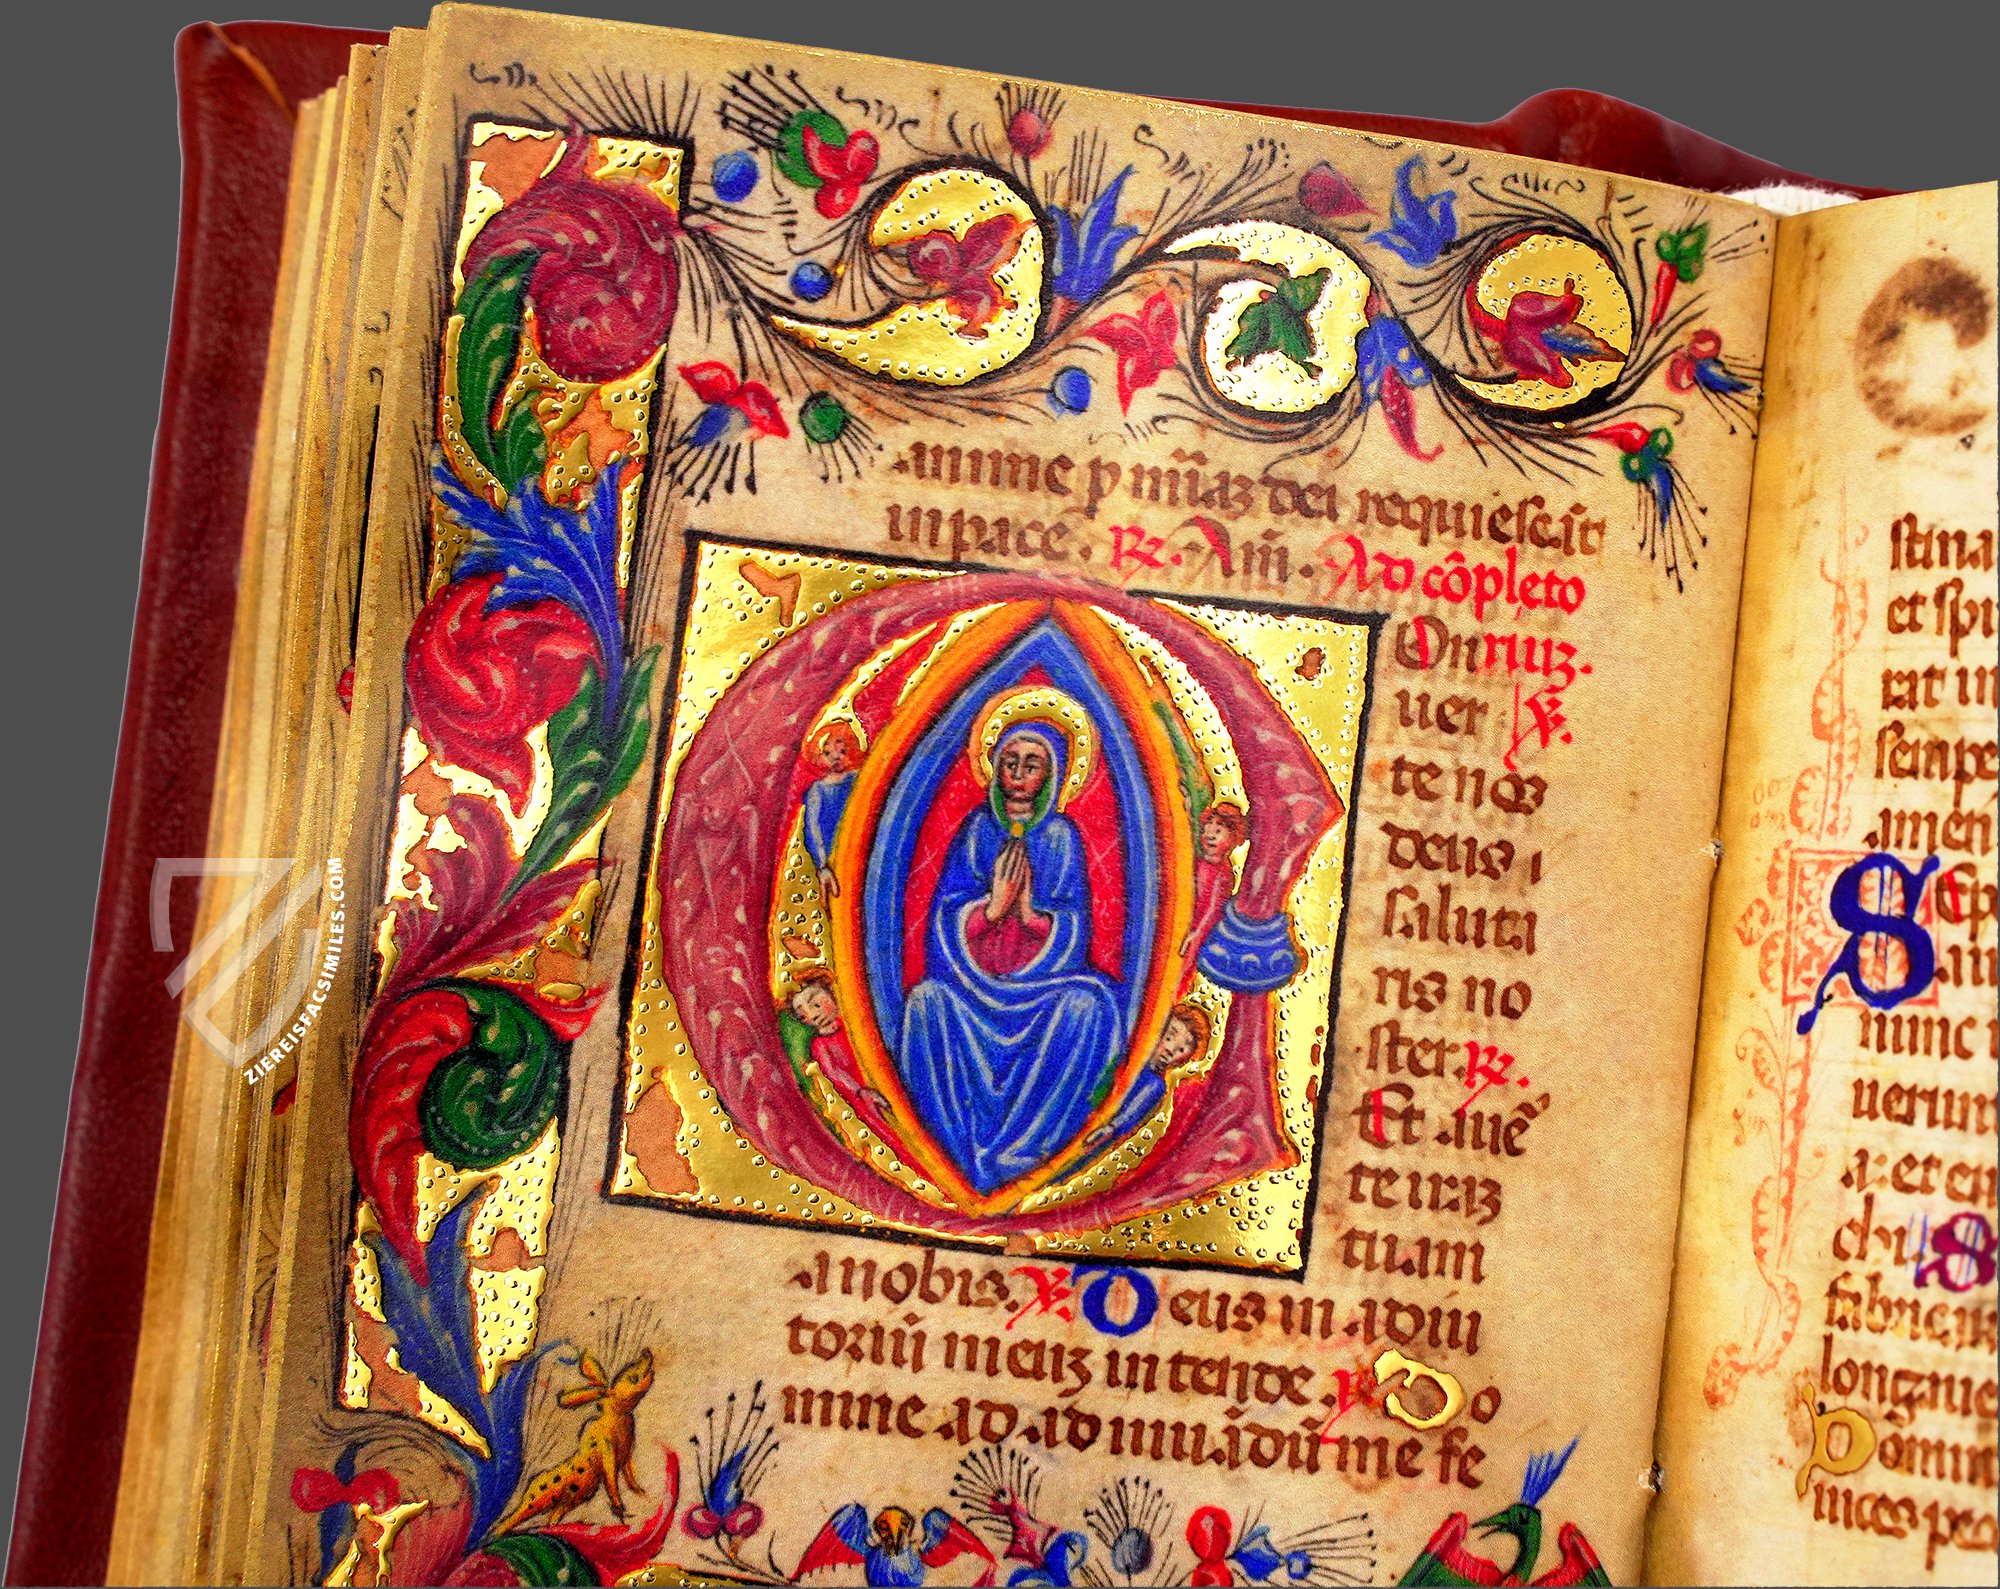 anime p mīaꝫ dei requiescāt
in pace. ꝶ. Am̄. Ad cōpleto
Onruiꝫ.
uer ℣.
te nos
deus ı
saluta
ris no
ster. ꝶ.
Et aue
te iraꝫ
tuam
a nobis. ℣. Deus in adiu
toriū meuꝫ intende. ℣ Do
mine ad adiuuādū me fe
stina
et spi
rat in
sempe
amen
S
nunc
uerunt
a: et en
chi
fabrica
longaue
Dōmin
ZIEREISFACSIMILES.COM